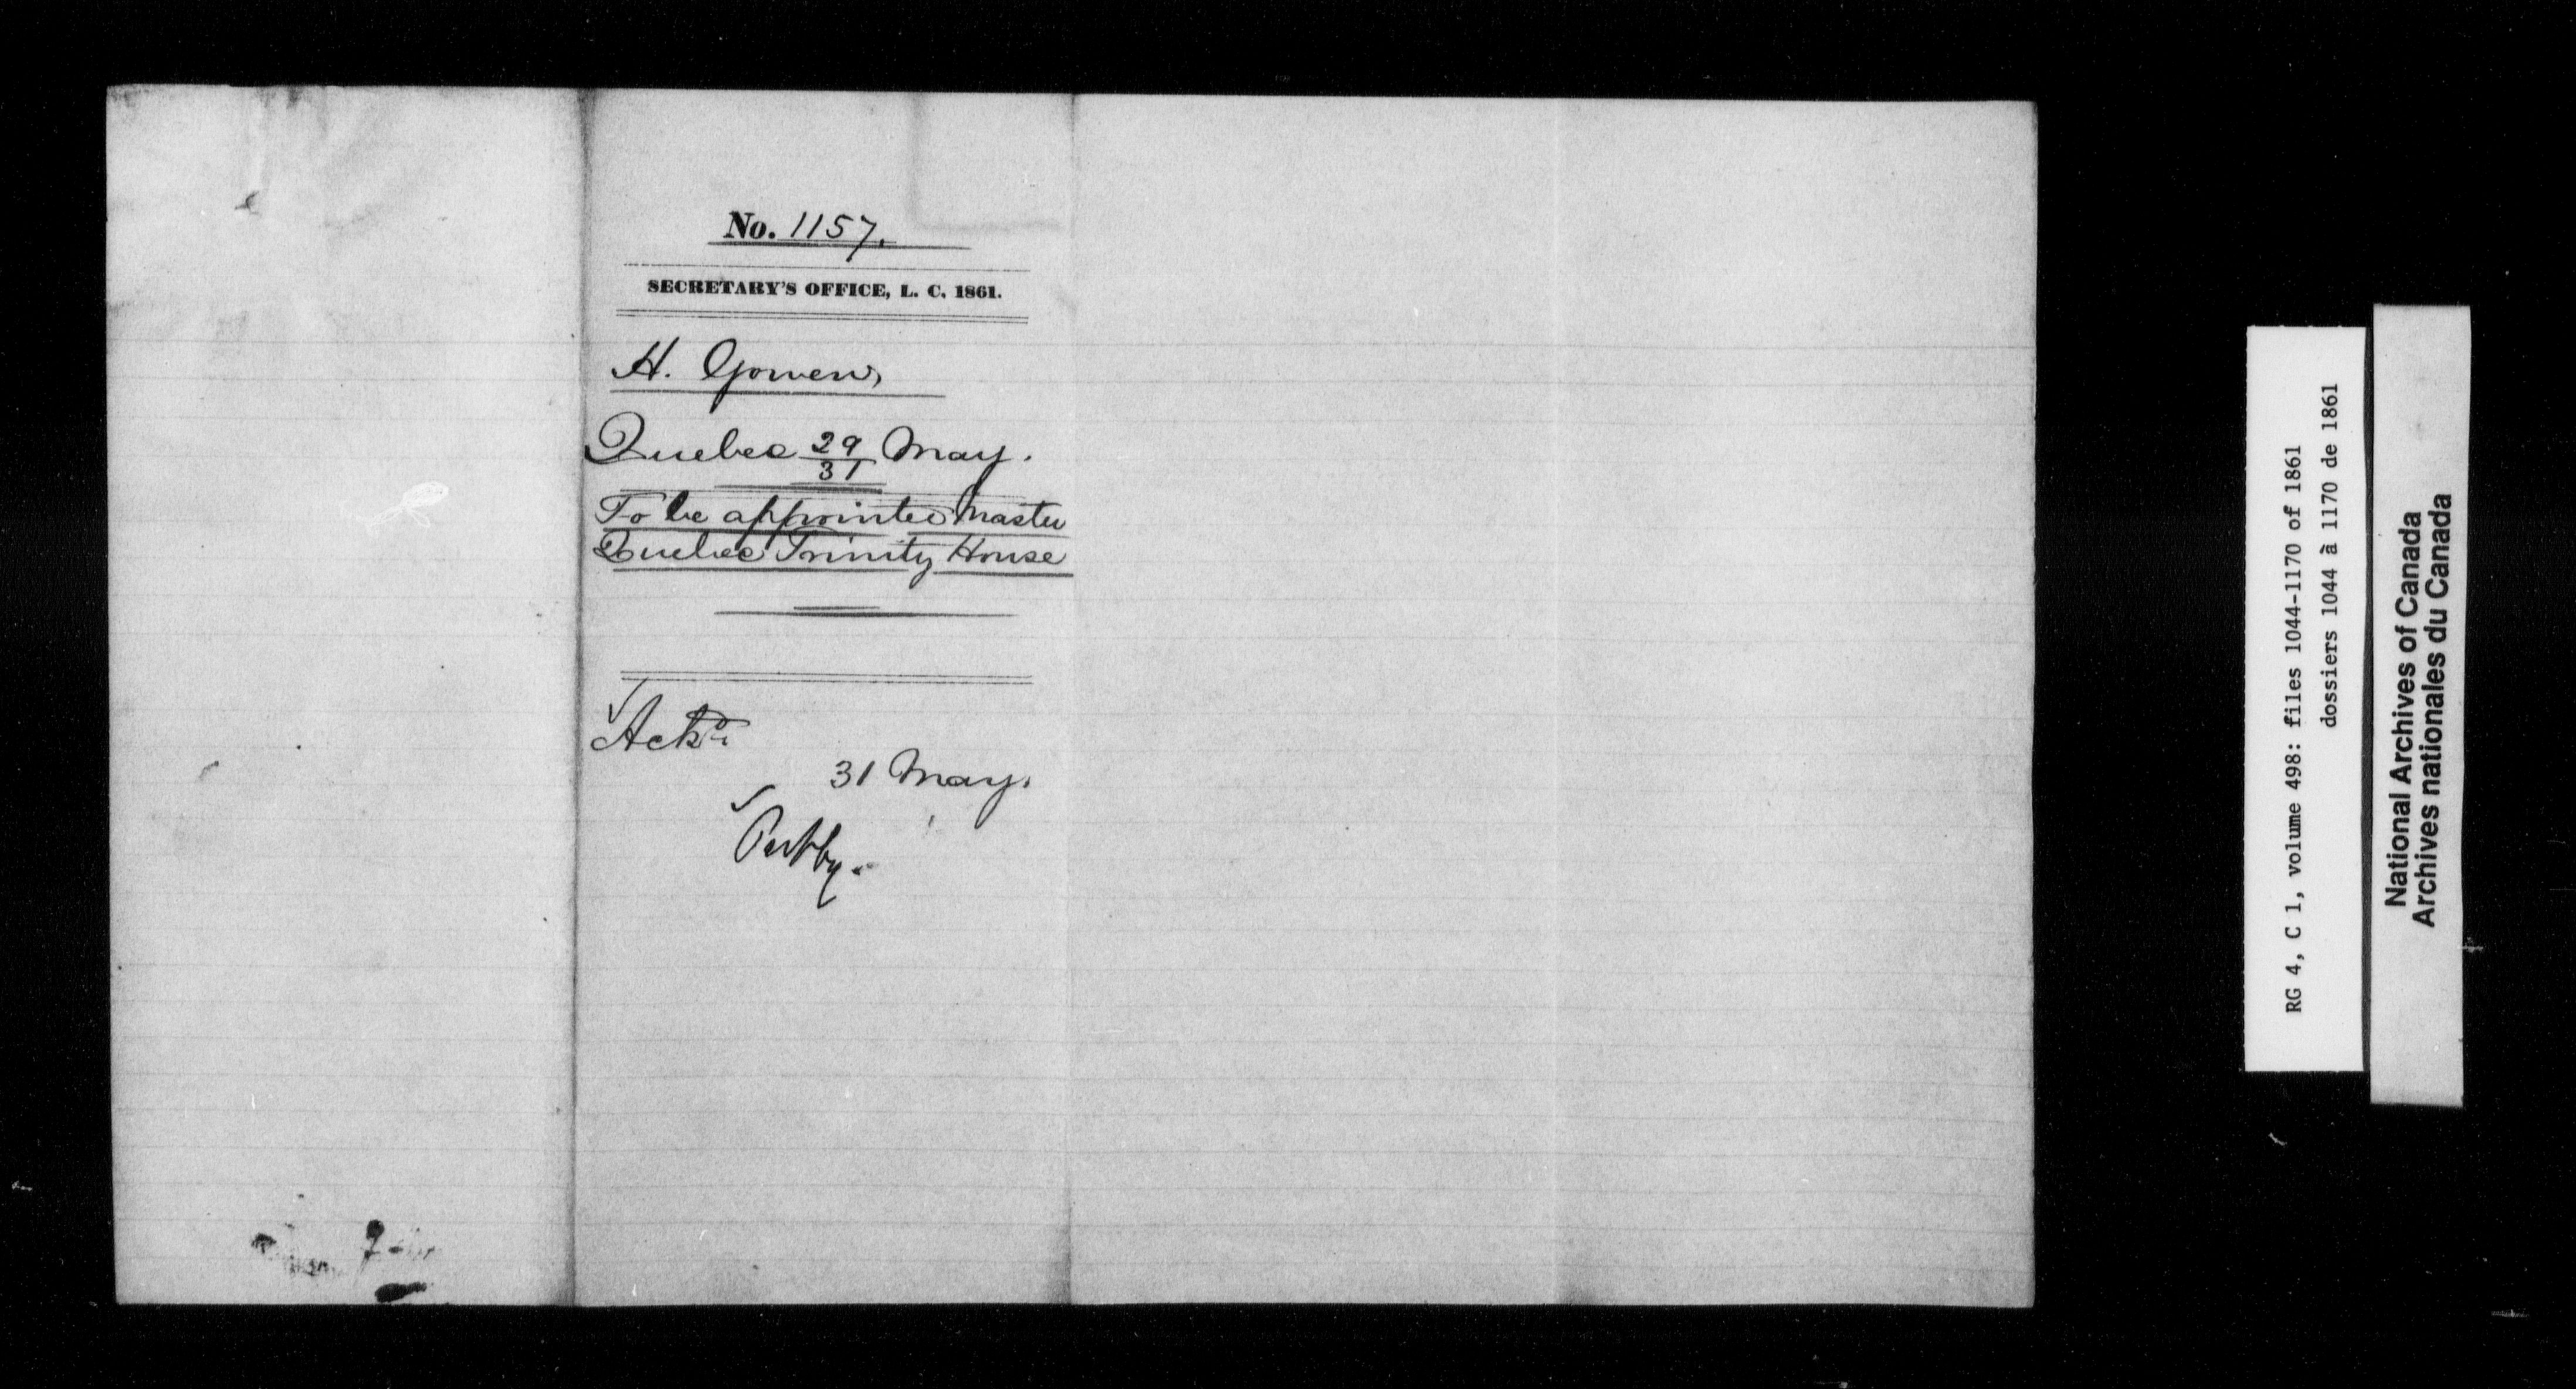 No. 1157.
SECRETARY'S OFFICE, L. C. 1861.
H. Gowen,
Quebec 29/31 May.
To be appointed Master
Quebec Trinity House
Ackd.
31 May.
RG 4, C 1, volume 498: files 1044-1170 of 1861
dossiers 1044 à 1170 de 1861
National Archives of Canada
Archives nationales du Canada